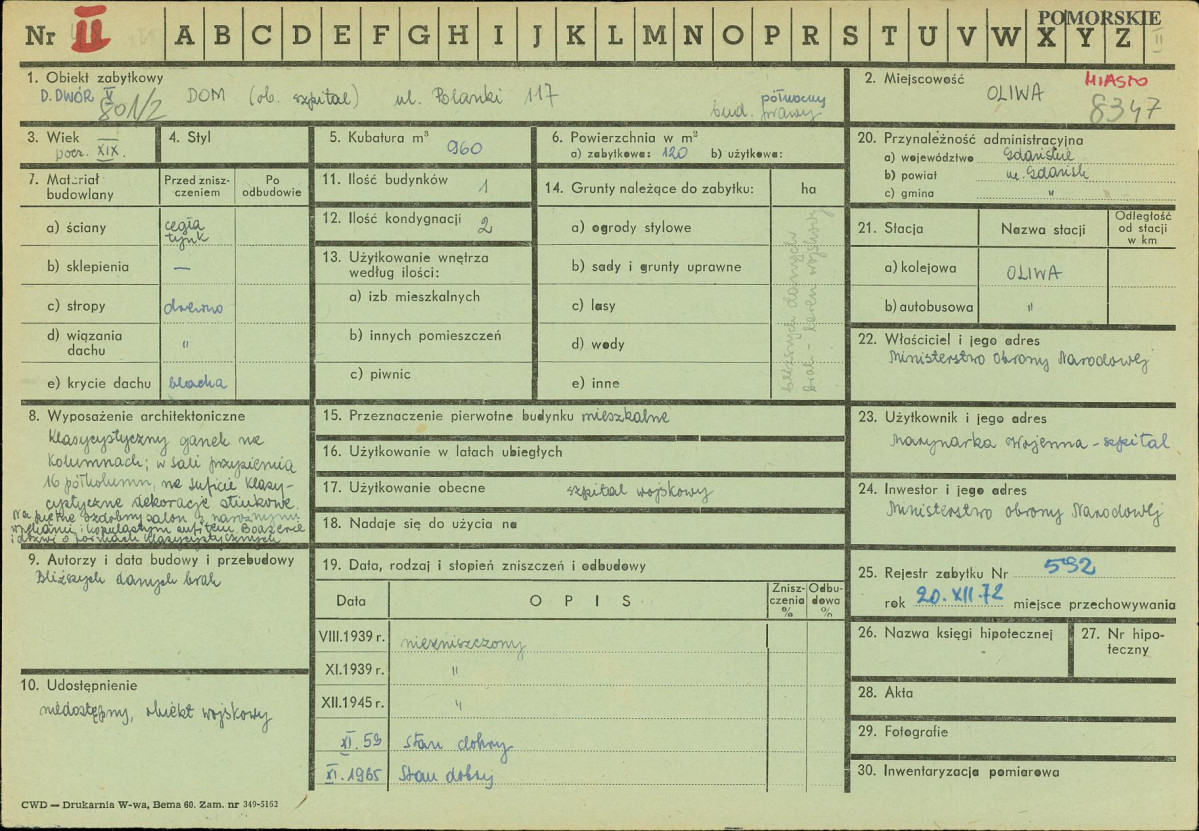 Nr II A B C D E F G H I J K L M N O P R S T U V W X Y Z
POMORSKIE
II
1. Obiekt zabytkowy
D. DWÓR V
801/2
DOM (ob. szpital) ul. Polanki 117
północny
bud. prawy
2. Miejscowość
MIASTO
OLIWA
8347
3. Wiek
pocz. XIX.
4. Styl
5. Kubatura m³ 960
6. Powierzchnia w m²
a) zabytkowa: 120 b) użytkowa:
20. Przynależność administracyjna
a) województwo Gdańskie
b) powiat m. Gdańsk
c) gmina "
7. Materiał budowlany
Przed zniszczeniem
Po odbudowie
a) ściany cegła tynk
b) sklepienia —
c) stropy drewno
d) wiązania dachu "
e) krycie dachu blacha
11. Ilość budynków 1
12. Ilość kondygnacji 2
13. Użytkowanie wnętrza według ilości:
a) izb mieszkalnych
b) innych pomieszczeń
c) piwnic
14. Grunty należące do zabytku: ha
a) ogrody stylowe
b) sady i grunty uprawne
c) lasy
d) wody
e) inne
bliższych danych
brak - teren wojskowy
21. Stacja
Nazwa stacji
Odległość od stacji w km
a) kolejowa OLIWA
b) autobusowa "
22. Właściciel i jego adres
Ministerstwo Obrony Narodowej
8. Wyposażenie architektoniczne
Klasycystyczny ganek na
kolumnach; w sali przyziemia
16 półkolumn, na suficie klasy-
cystyczne dekoracje stiukowe.
Na piętrze ozdobny salon z narożnymi
wnękami i kopulastym sufitem Boazerie
i drzwi o formach klasycystycznych
15. Przeznaczenie pierwotne budynku mieszkalne
16. Użytkowanie w latach ubiegłych
17. Użytkowanie obecne szpital wojskowy
18. Nadaje się do użycia na
23. Użytkownik i jego adres
Marynarka Wojenna - szpital
24. Inwestor i jego adres
Ministerstwo Obrony Narodowej
9. Autorzy i data budowy i przebudowy
Bliższych danych brak
19. Data, rodzaj i stopień zniszczeń i odbudowy
Data
O P I S
Zniszczenia %
Odbudowa %
VIII.1939 r. niezniszczony
XI.1939 r. "
XII.1945 r. "
XI. 59 Stan dobry
XI. 1965 Stan dobry
25. Rejestr zabytku Nr 592
rok 20.XII.72 miejsce przechowywania
26. Nazwa księgi hipotecznej
27. Nr hipoteczny
10. Udostępnienie
niedostępny, obiekt wojskowy
28. Akta
29. Fotografie
30. Inwentaryzacja pomiarowa
CWD — Drukarnia W-wa, Bema 60. Zam. nr 349-5162